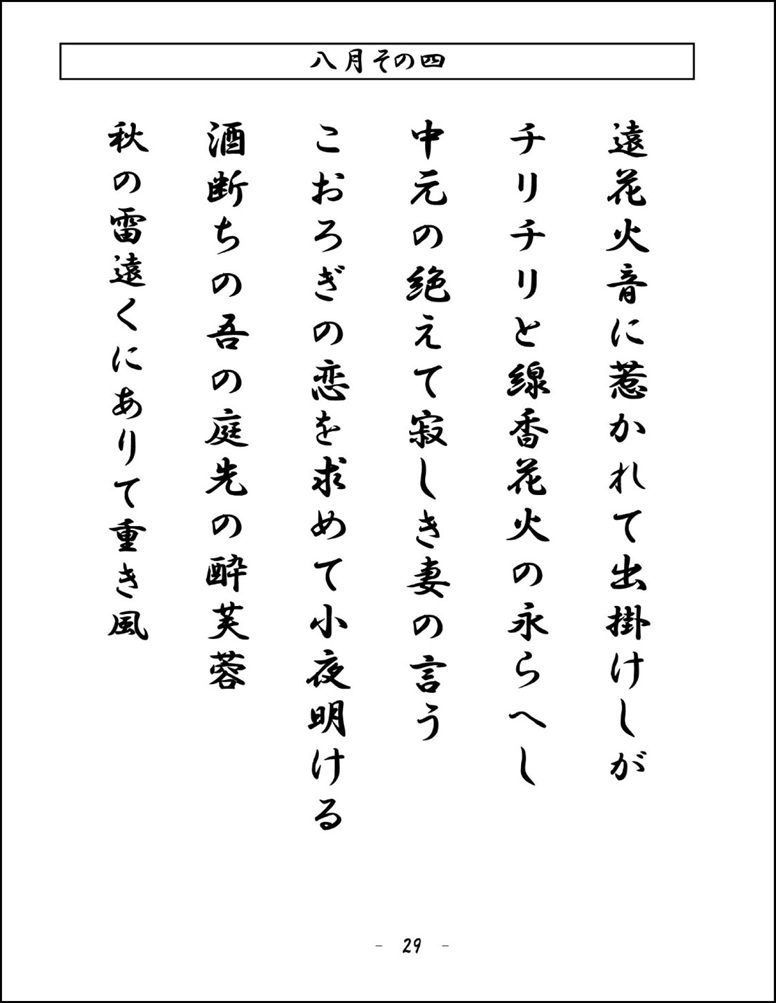 八月その四
遠花火音に惹かれて出掛けしが
チリチリと線香花火の永らへし
中元の絶えて寂しき妻の言う
こおろぎの恋を求めて小夜明ける
酒断ちの吾の庭先の酔芙蓉
秋の雷遠くにありて重き風
- 29 -